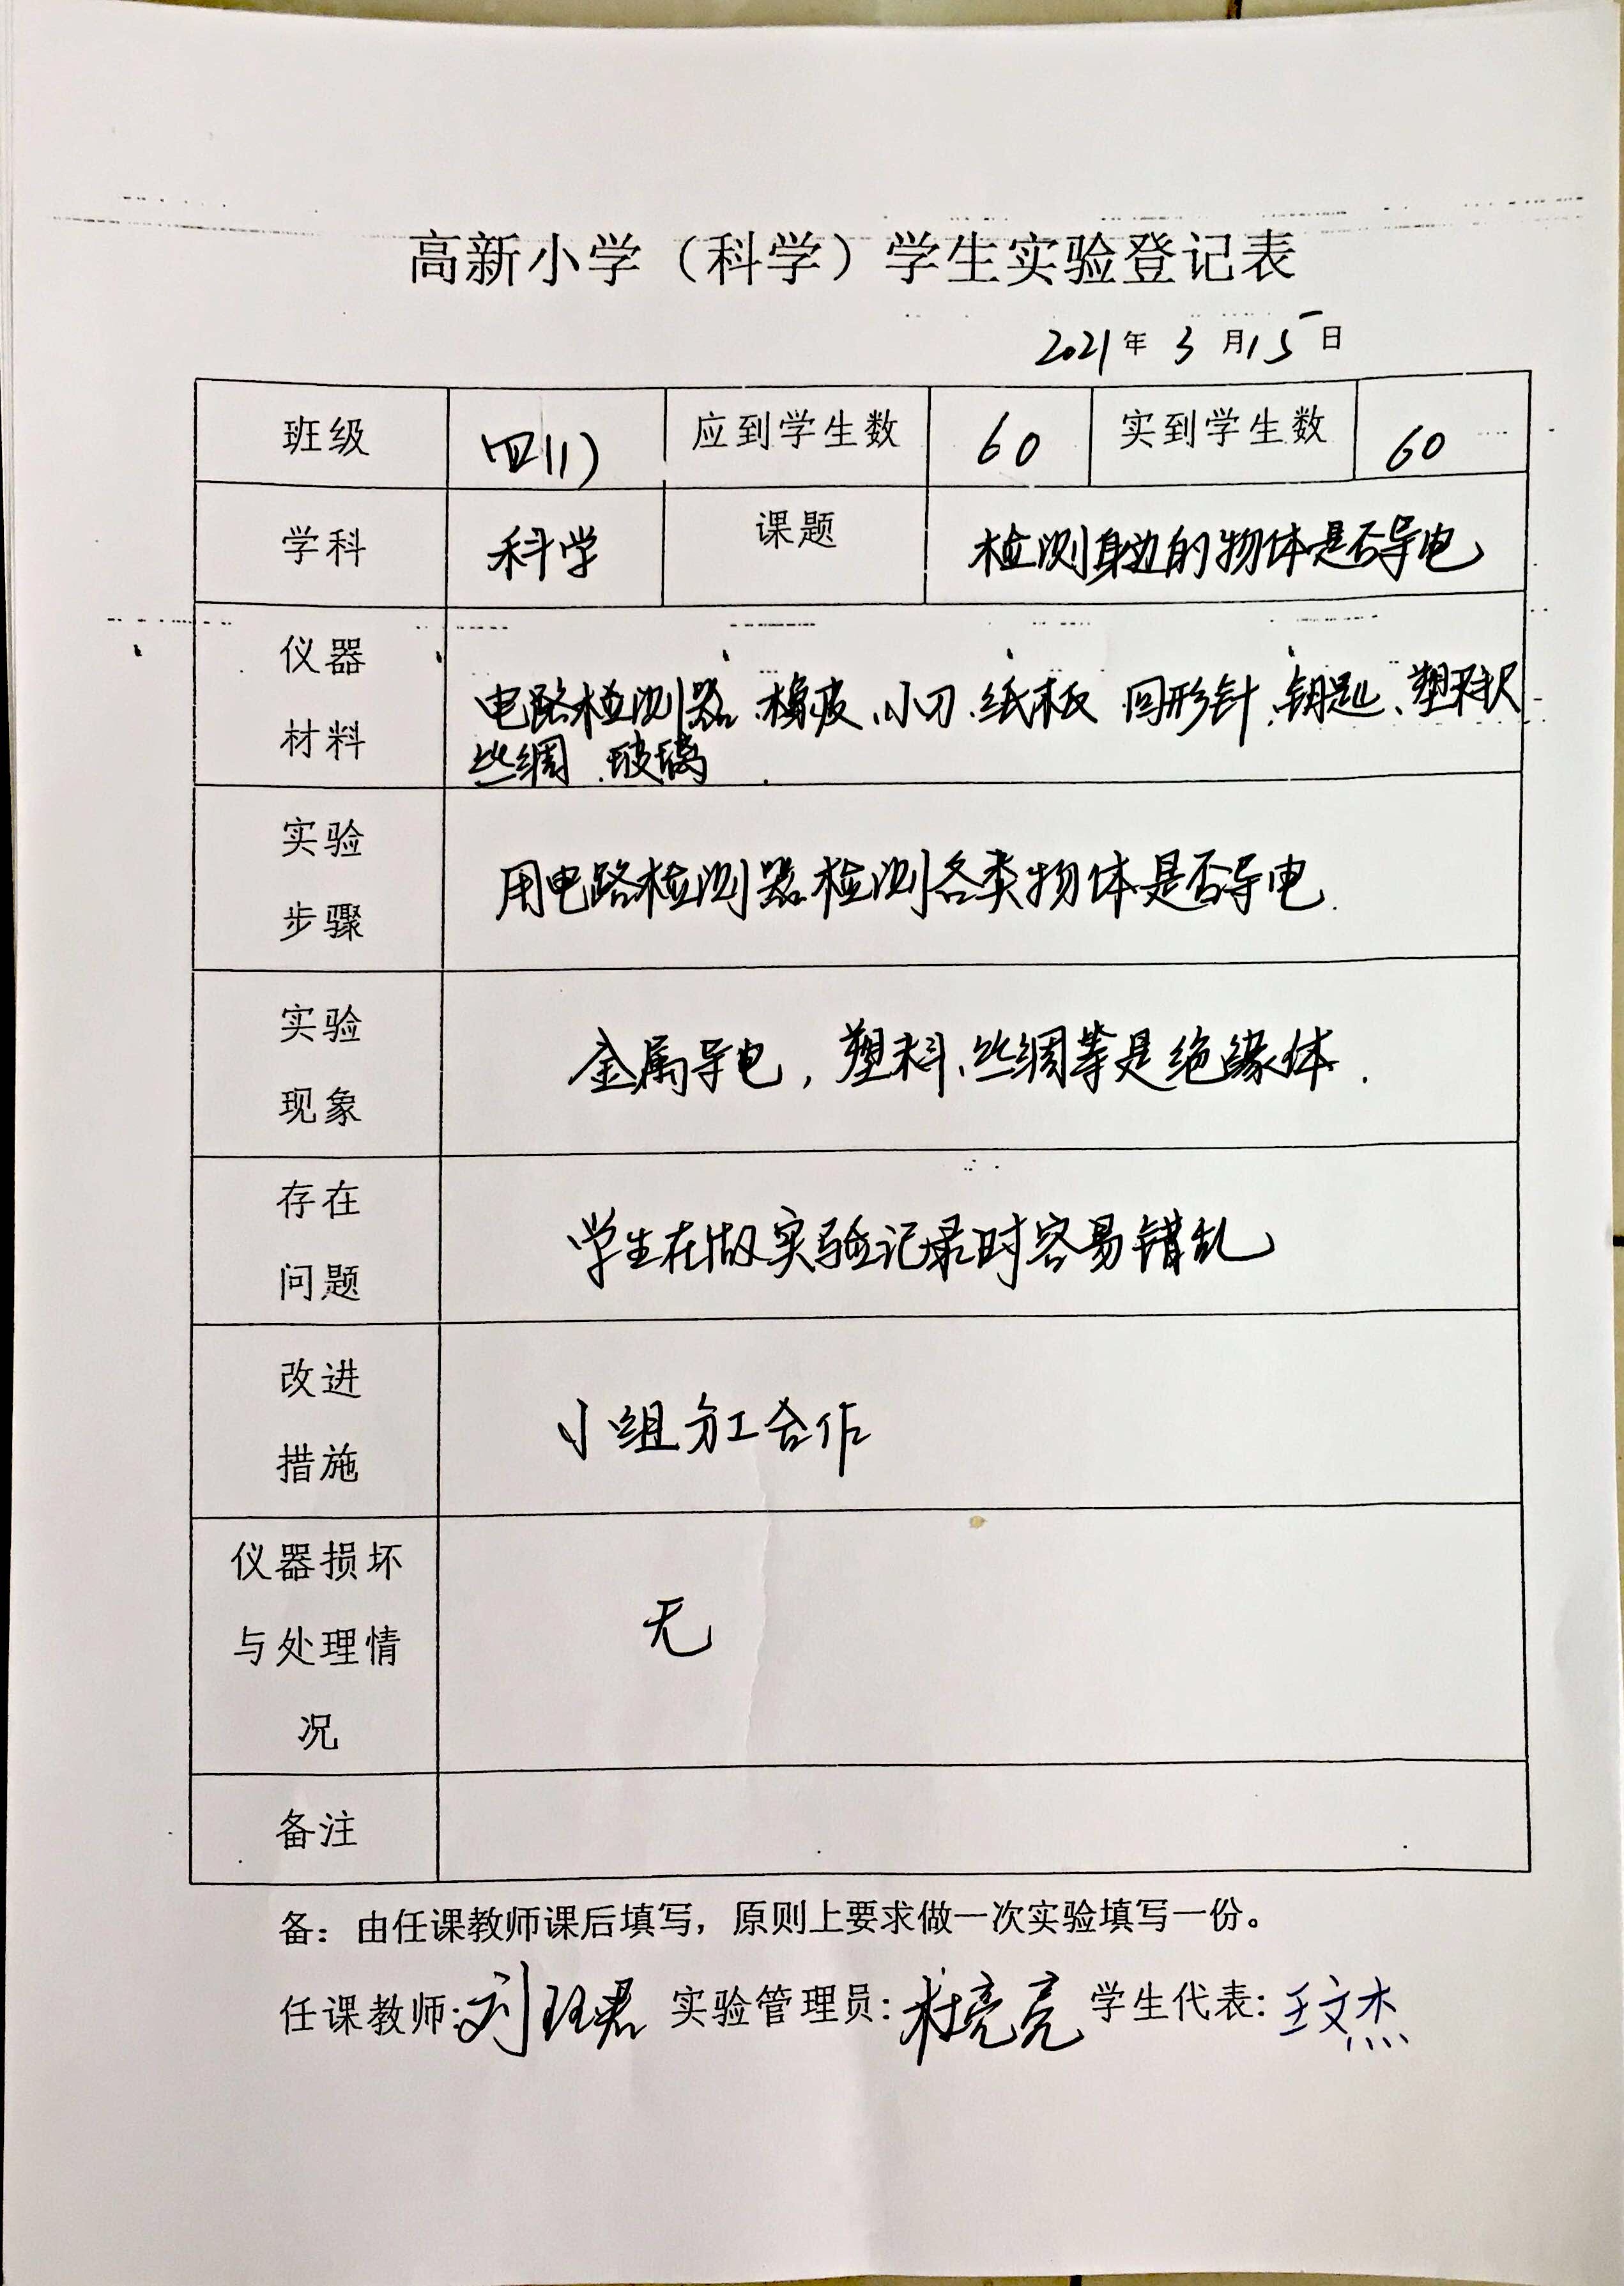 高新小学（科学）学生实验登记表
2021年 3 月15日
班级 四(1) 应到学生数 60 实到学生数 60
学科 科学 课题 检测身边的物体是否导电
仪器
材料
电路检测器、橡皮、小刀、纸板 回形针、钥匙、塑料尺
丝绸、玻璃
实验
步骤
用电路检测器检测各类物体是否导电.
实验
现象
金属导电，塑料、丝绸等是绝缘体.
存在
问题
学生在做实验记录时容易错乱
改进
措施
小组分工合作
仪器损坏
与处理情
况
无
备注
备：由任课教师课后填写，原则上要求做一次实验填写一份。
任课教师:刘 君 实验管理员:杜亮亮 学生代表:王文杰